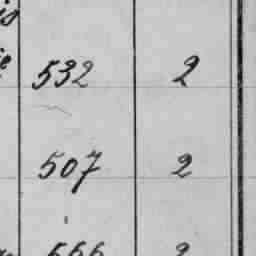 532 2
507 2
566 2